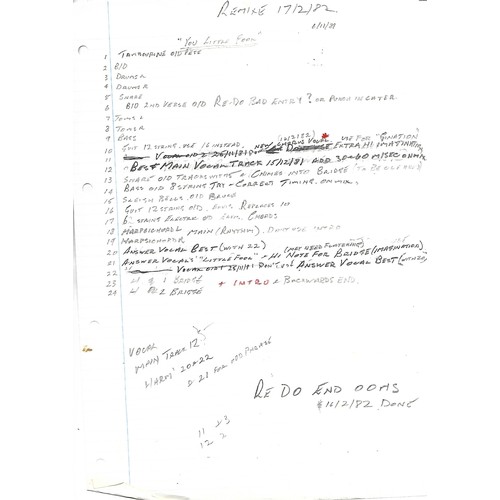 REMIXE 17/2/82
"YOU LITTLE FOOL"
1 TAMBOURINE O/D
2 B/D
3 DRUMS L
4 DRUMS R
5 SNARE
6 B/D 2ND VERSE O/D RE-DO BAD ENTRY? OR PUSH IN LATER
7 TOMS L
8 TOMS R
9 BASS
10 GUIT 12 STRING. USE 16 INSTEAD. NEW CHORUS VOCAL USE FOR
11 VOCAL O/D 2 25/11/81 EXTRA HI IMAGINATION
12 BEST MAIN VOCAL TRACK 15/12/81 ADD 30-40 MISEC ON MIX
13 SNARE O/D + CHIMES INTO BRIDGE
14 BASS O/D 8 STRING + CORRECT TIMING ON MIX
15 SLEIGH BELLS O/D
16 GUIT 12 STRING O/D. REPLACES 10
17 6 STRING ELECTRIC O/D CHORDS
18 HARPSICHORD MAIN (RHYTHM). DON'T USE
19 HARPSICHORD
20 ANSWER VOCAL BEST (WITH 22) (MAY NEED FLATTENING)
21 ANSWER VOCALS "LITTLE FOOL" + HI NOTE FOR BRIDGE (IMAGINATION)
22 VOCAL 25/11/81 DON'T USE ANSWER VOCAL BEST (WITH 20)
23 1 BRIDGE + INTRO & BACKWARDS END.
24 2 BRIDGE
VOCAL
MAIN TRACK 12
HARM' 20+22
& 21 FOR ODD PHRASE
RE'DO END OOHS
16/2/82 DONE
11 23
12 2